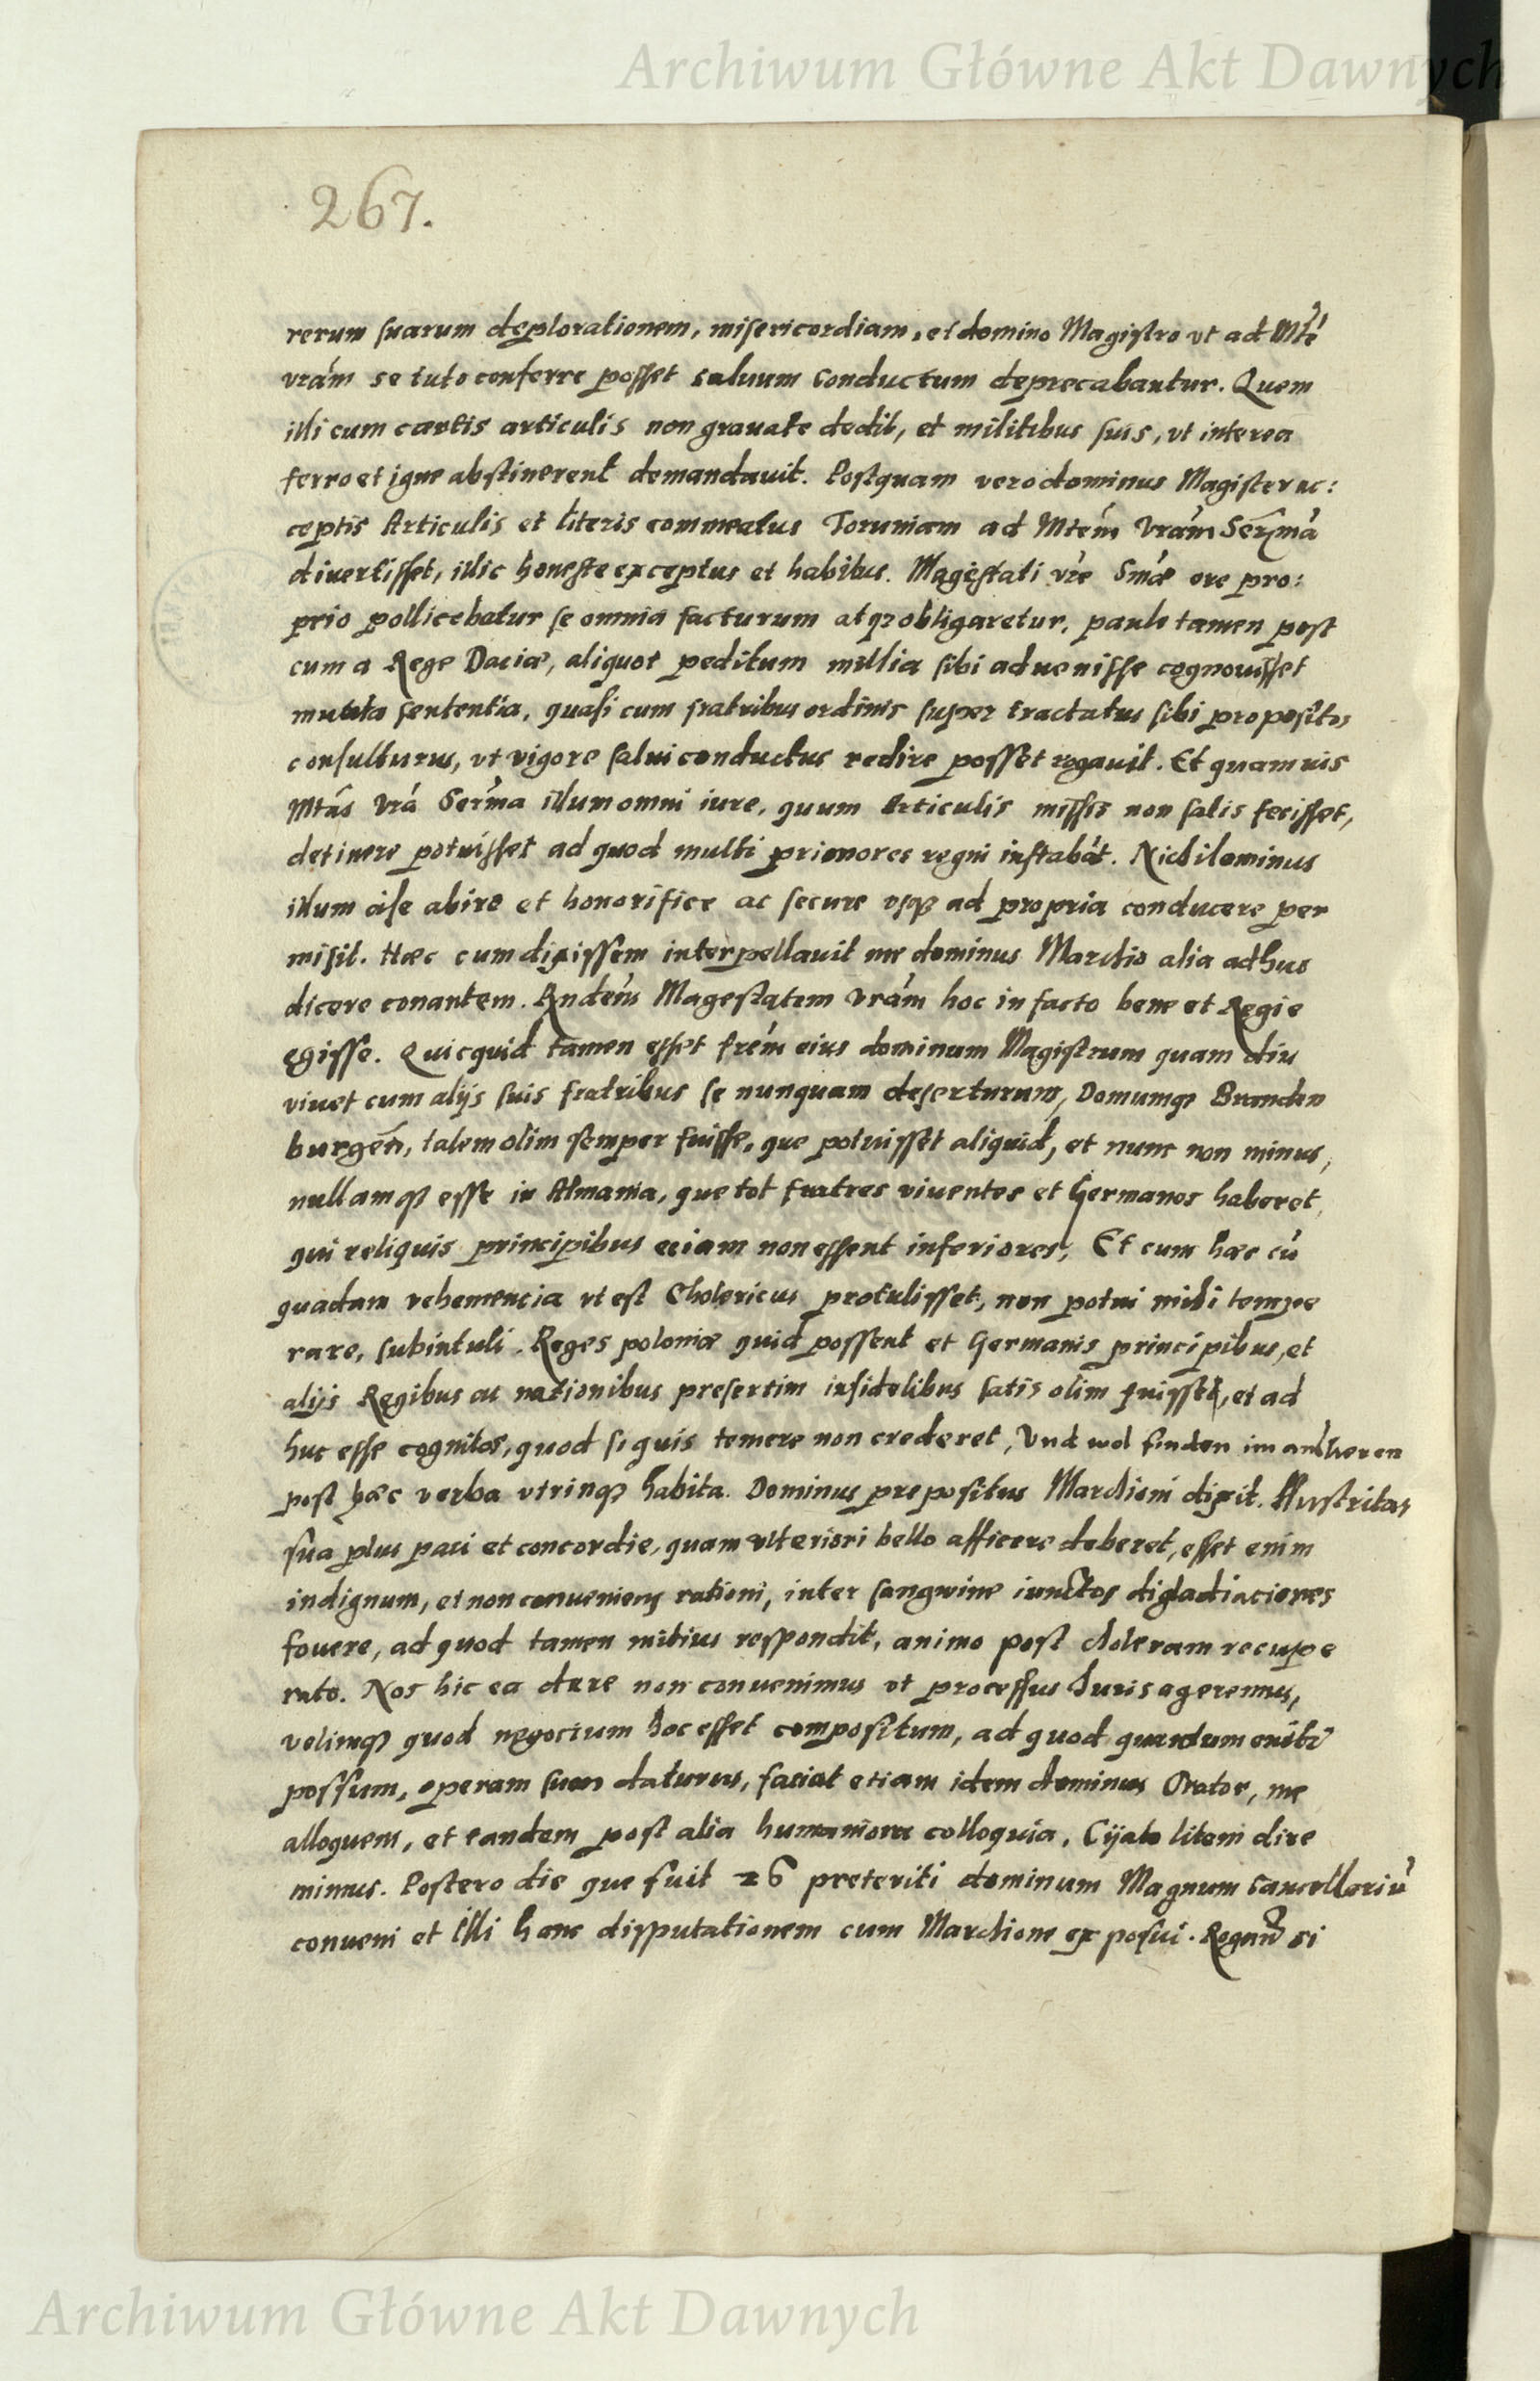 Archiwum Główne Akt Dawnych
267.
rerum suarum deplorationem, misericordiam, et domino Magistro vt ad Mte
vram se tuto conferre posset saluum conductum deprecabantur. Quem
illi cum certis articulis non grauate dedit, et militibus suis, vt interea
ferro et igne abstinerent demandauit. Postquam vero dominus Magister ac:
ceptis Articulis et literis commeatus Toruniam ad Mtem Vram Sermã
diuertisset, illic honeste exceptus et habitus. Magestati vre Smæ ore pro:
prio pollicebatur se omnia facturum atqz obligaretur, paulo tamen post
cum a Rege Daciæ, aliquot peditum millia sibi aduenisse cognouisset
mutata sententia, quasi cum fratribus ordinis super tractatus sibi propositos
consulturus, vt vigore salui conductus redire posset rogauit. Et quamuis
Mtas Vra Serma illum omni iure, quum Articulis missis non satis fecisset,
detinere potuisset ad quod multi primores regni instabãt. Nichilominus
illum abire et honorifice ac secure vsqz ad propria conducere per
misit. Hæc cum dixissem interpellauit me dominus Marchio alia adhuc
dicere conantem. Magestatem Vram hoc in facto bene et Regie
egisse. Quicquid tamen esset frem eius dominum Magistrum quam diu
viuet cum alijs suis fratribus se nunquam deserturum, Domumqz Branden
burgen, talem olim semper fuisse, que potuisset aliquid, et nunc non minus,
nullamqz esse in Almania, que tot fratres viuentes et Germanos haberet
qui reliquis principibus eciam non essent inferiores, Et cum hæc cũ
quadam vehemencia vt est Cholericus protulisset, non potui mihi tempe
rare, subintuli. Reges poloniæ quid possent et Germanis principibus, et
alijs Regibus ac nationibus presertim infidelibus satis olim fuisset, et ad
huc esse cognitos, quod si quis temere non crederet, Vnd wol finden im
post hæc verba vtrinqz habita. Dominus prepositus Marchioni dixit. Illustritas
sua plus paci et concordie, quam vlteriori bello afficere deberet, esset enim
indignum, et non conueniens rationi, inter sangwine iunctos digladiaciones
fouere, ad quod tamen mitius respondit, animo post choleram recupe
rato. Nos hic ea de re non conuenimus vt processus Iuris ageremus,
velimqz quod negocium hoc esset compositum, ad quod quantum
possum, operam sum daturus, faciat etiam idem dominus Orator, me
alloquens, et eandem post alia humaniora colloquia, Cyato litem dire
mimus. Postero die que fuit 26 preteriti dominum Magnum Cancellariũ
conueni et illi hanc disputationem cum Marchione exposui. si
Archiwum Główne Akt Dawnych